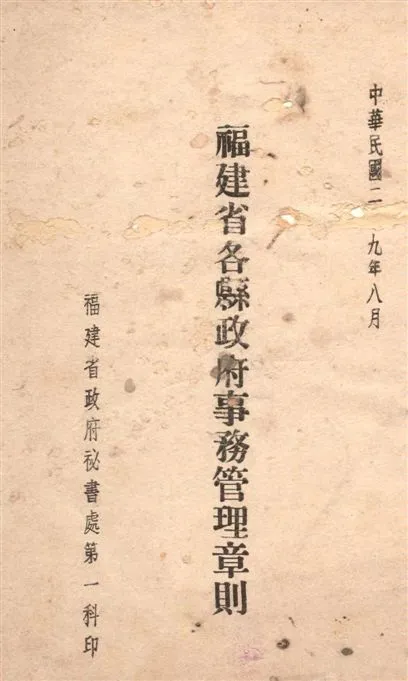 中華民國二 九年八月
福建省各縣政府事務管理章則
福建省政府祕書處第一科印